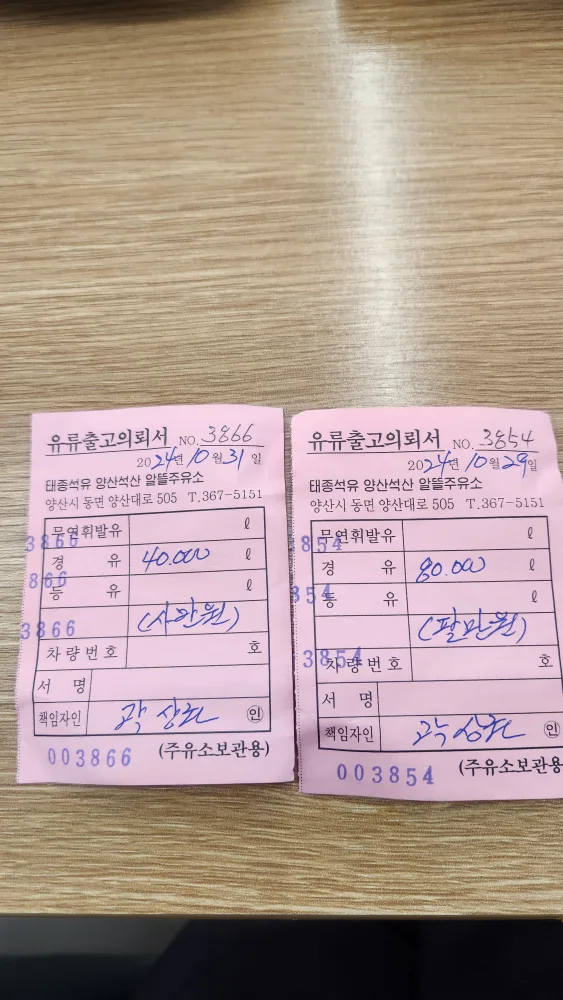 유류출고의뢰서 NO. 3866
2024년 10월 31일
태종석유 양산석산 알뜰주유소
양산시 동면 양산대로 505 T.367-5151
무연휘발유 ℓ
3866
경 유 40.000 ℓ
866
등 유 ℓ
(사만원)
3866
차량번호 호
서 명
책임자인 곽상 인
003866 (주유소보관용)
유류출고의뢰서 NO. 3854
2024년 10월 29일
태종석유 양산석산 알뜰주유소
양산시 동면 양산대로 505 T.367-5151
무연휘발유 ℓ
854
경 유 80.000 ℓ
54
등 유 ℓ
(팔만원)
3854
차량번호 호
서 명
책임자인 인
003854 (주유소보관용